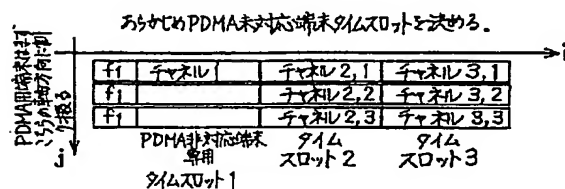 あらかじめPDMA未対応端末タイムスロットを決める.
i
PDMA用端末はまず
こちらの軸方向に割
り振る
j
f1 チャネル1 チャネル2,1 チャネル3,1
f1 チャネル2,2 チャネル3,2
f1 チャネル2,3 チャネル3,3
PDMA非対応端末
専用
タイムスロット1
タイム
スロット2
タイム
スロット3